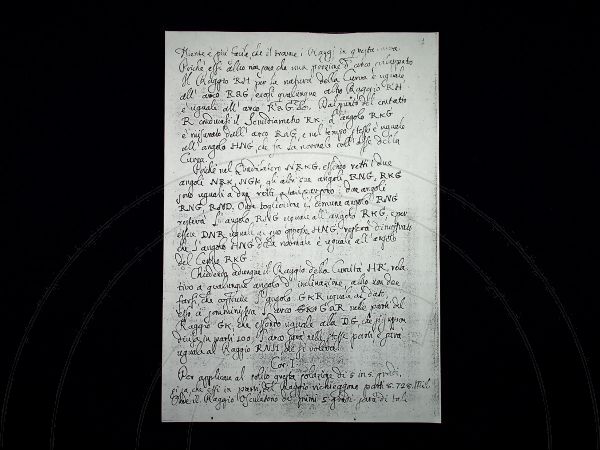 Niente è più facile, che il trovare i Raggi in questa curva.
Poichè essi altro non sono che una porzione d'arco sviluppato
Il Raggio RH per la natura della Curva è uguale
all' arco RBG, e così qualunque altro Raggio RH
è uguale all' arco RBG. Dal punto del contatto
R conducasi il Semidiametro RK, l'angolo RKG
è misurato dall' arco RBG, e nel tempo stesso è uguale
all' angolo HNG, che fa la normale coll' Asse della
Curva.
Poichè nel Quadrilatero NRKG, essendo retti i due
angoli NRK, NGK, gli altri due angoli RNG, RKG
sono uguali a due retti, e lo stesso sono i due angoli
RNG, RND. Onde togliendone il comune angolo RNG
resterà l'angolo RNG uguale all' angolo RKG, e per
essere DNR uguale al suo opposto HNG, resterà dimostrato
che l'angolo HNG della normale è uguale all' angolo
del Centro RKG.
Chiedendo adunque il Raggio della Curvità HR, rela
tivo a qualunque angolo d'inclinazione, altro non dee
farsi, che costruire l'angolo GKR uguale al dato,
e si somministra l'arco GBR nelle parti del
Raggio GK, che essendo uguale alla DG, che si suppon
divisa in parti 100, l'arco sarà nelle stesse parti, e sarà
uguale al Raggio RNH che si voleva.
Cor. I
Per applicare al solito questa soluzione di 5 in 5 gradi,
si sa che essi in parti del Raggio richieggono parti 8. 728 Mill.
Onde il Raggio Osculatore de' primi 5 gradi sarà di tali